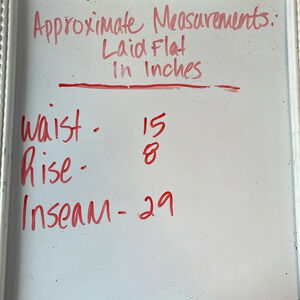 Approximate Measurements:
Laid Flat
In Inches
Waist - 15
Rise - 8
Inseam - 29